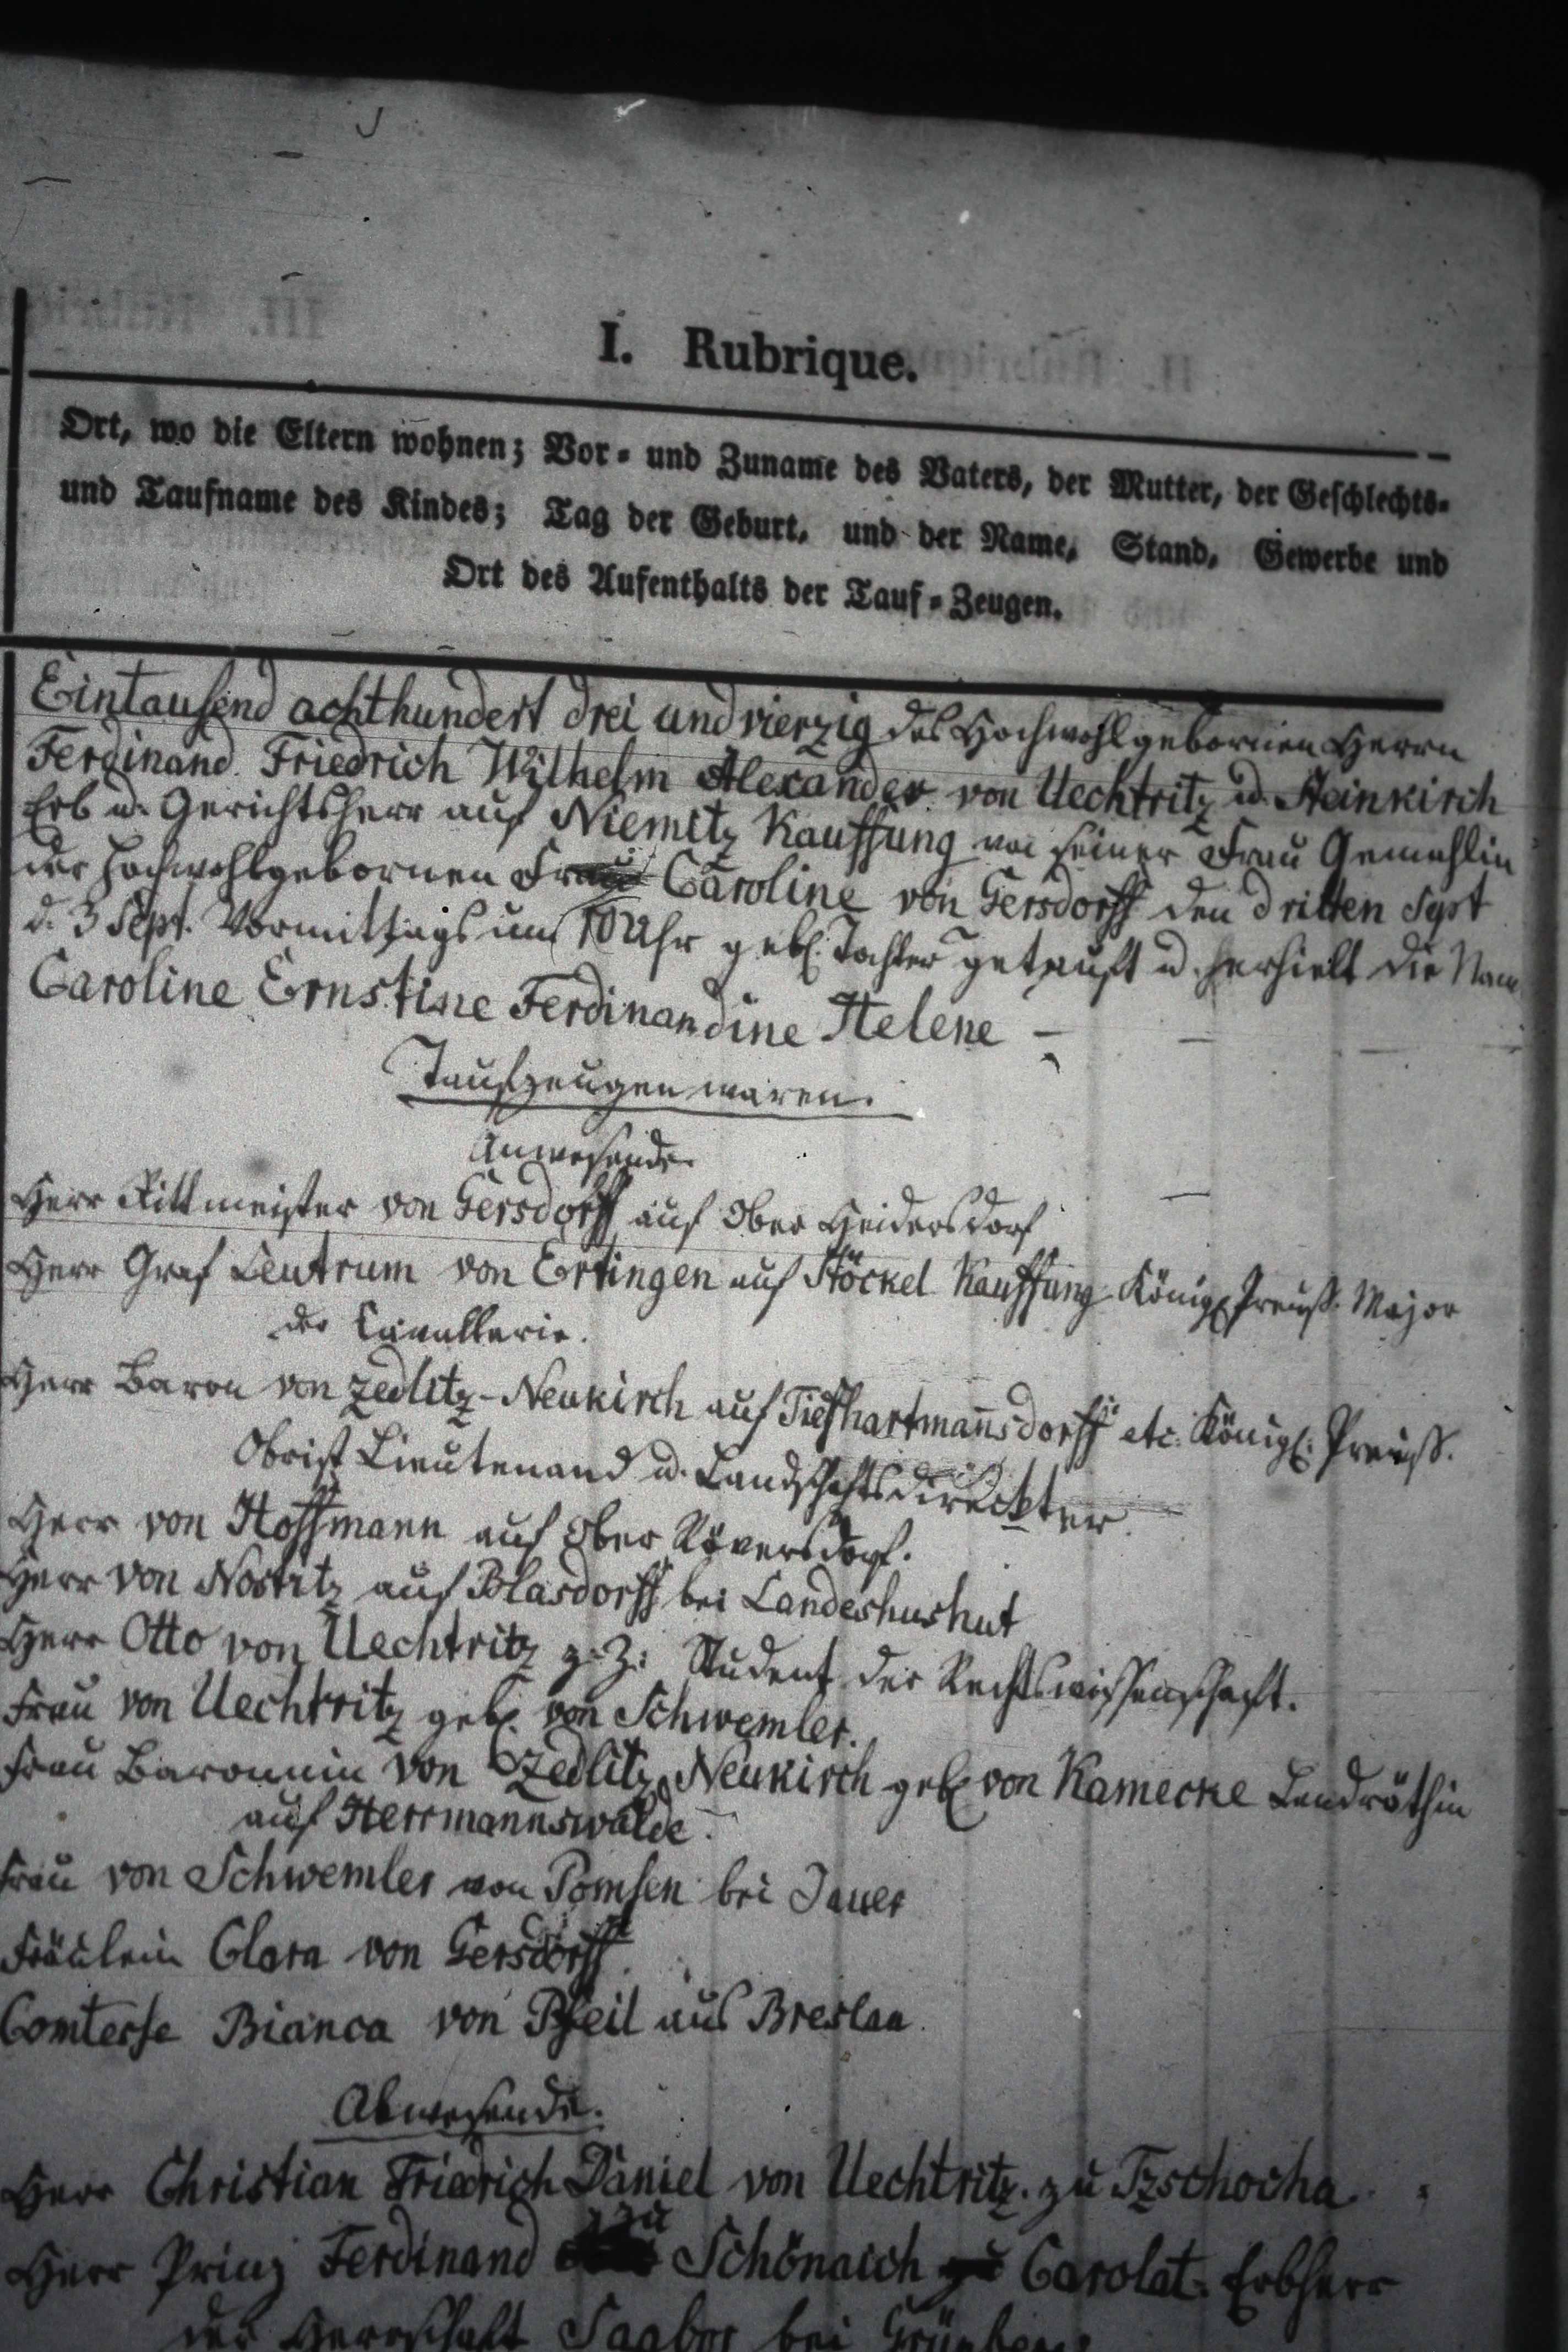 I. Rubrique.
Ort, wo die Eltern wohnen; Vor- und Zuname des Vaters, der Mutter, der Geschlechts-
und Taufname des Kindes; Tag der Geburt, und der Name, Stand, Gewerbe und
Ort des Aufenthalts der Tauf-Zeugen.
Eintausend achthundert drei und vierzig des Hochwohlgebornen Herrn
Ferdinand Friedrich Wilhelm Alexander von Uechtritz u. Steinkirch
Erb u. Gerichtsherr auf Niemitz Kauffung von seiner Frau Gemahlin
der Hochwohlgebornen Frau Caroline von Gersdorff den dritten Sept
d. 3 Sept. Vormittags um 10 Uhr geb. Tochter getauft u. erhielt die Nam
Caroline Ernstine Ferdinandine Helene –
Taufzeugen waren.
Anwesende
Herr Rittmeister von Gersdorff auf Ober Heidersdorf
Herr Graf Leutrum von Ertingen auf Stöckel Kauffung Königl. Preuß. Major
der Cavallerie.
Herr Baron von Zedlitz-Neukirch auf Tiefhartmannsdorff etc. Königl. Preuß.
Obrist Lieutenand u. Landschaftsdirektter.
Herr von Hoffmann auf Ober Röversdorf.
Herr von Nostitz auf Blasdorff bei Landeshushut
Herr Otto von Uechtritz z. Z. Student der Rechtswissenschaft.
Frau von Uechtritz geb. von Schwemler.
Frau Baronnin von Zedlitz Neukirch geb von Kamecke Landräthin
auf Herrmannswalde.
Frau von Schwemler von Pomsen bei Jauer
Fräulein Clara von Gersdorff.
Comtesse Bianca von Pfeil aus Breslau.
Abwesende.
Herr Christian Friedrich Daniel von Uechtritz zu Tzschocha
Herr Prinz Ferdinand zu Schönaich Carolat. Erbherr
der Herrschaft Saabor bei Grünberg